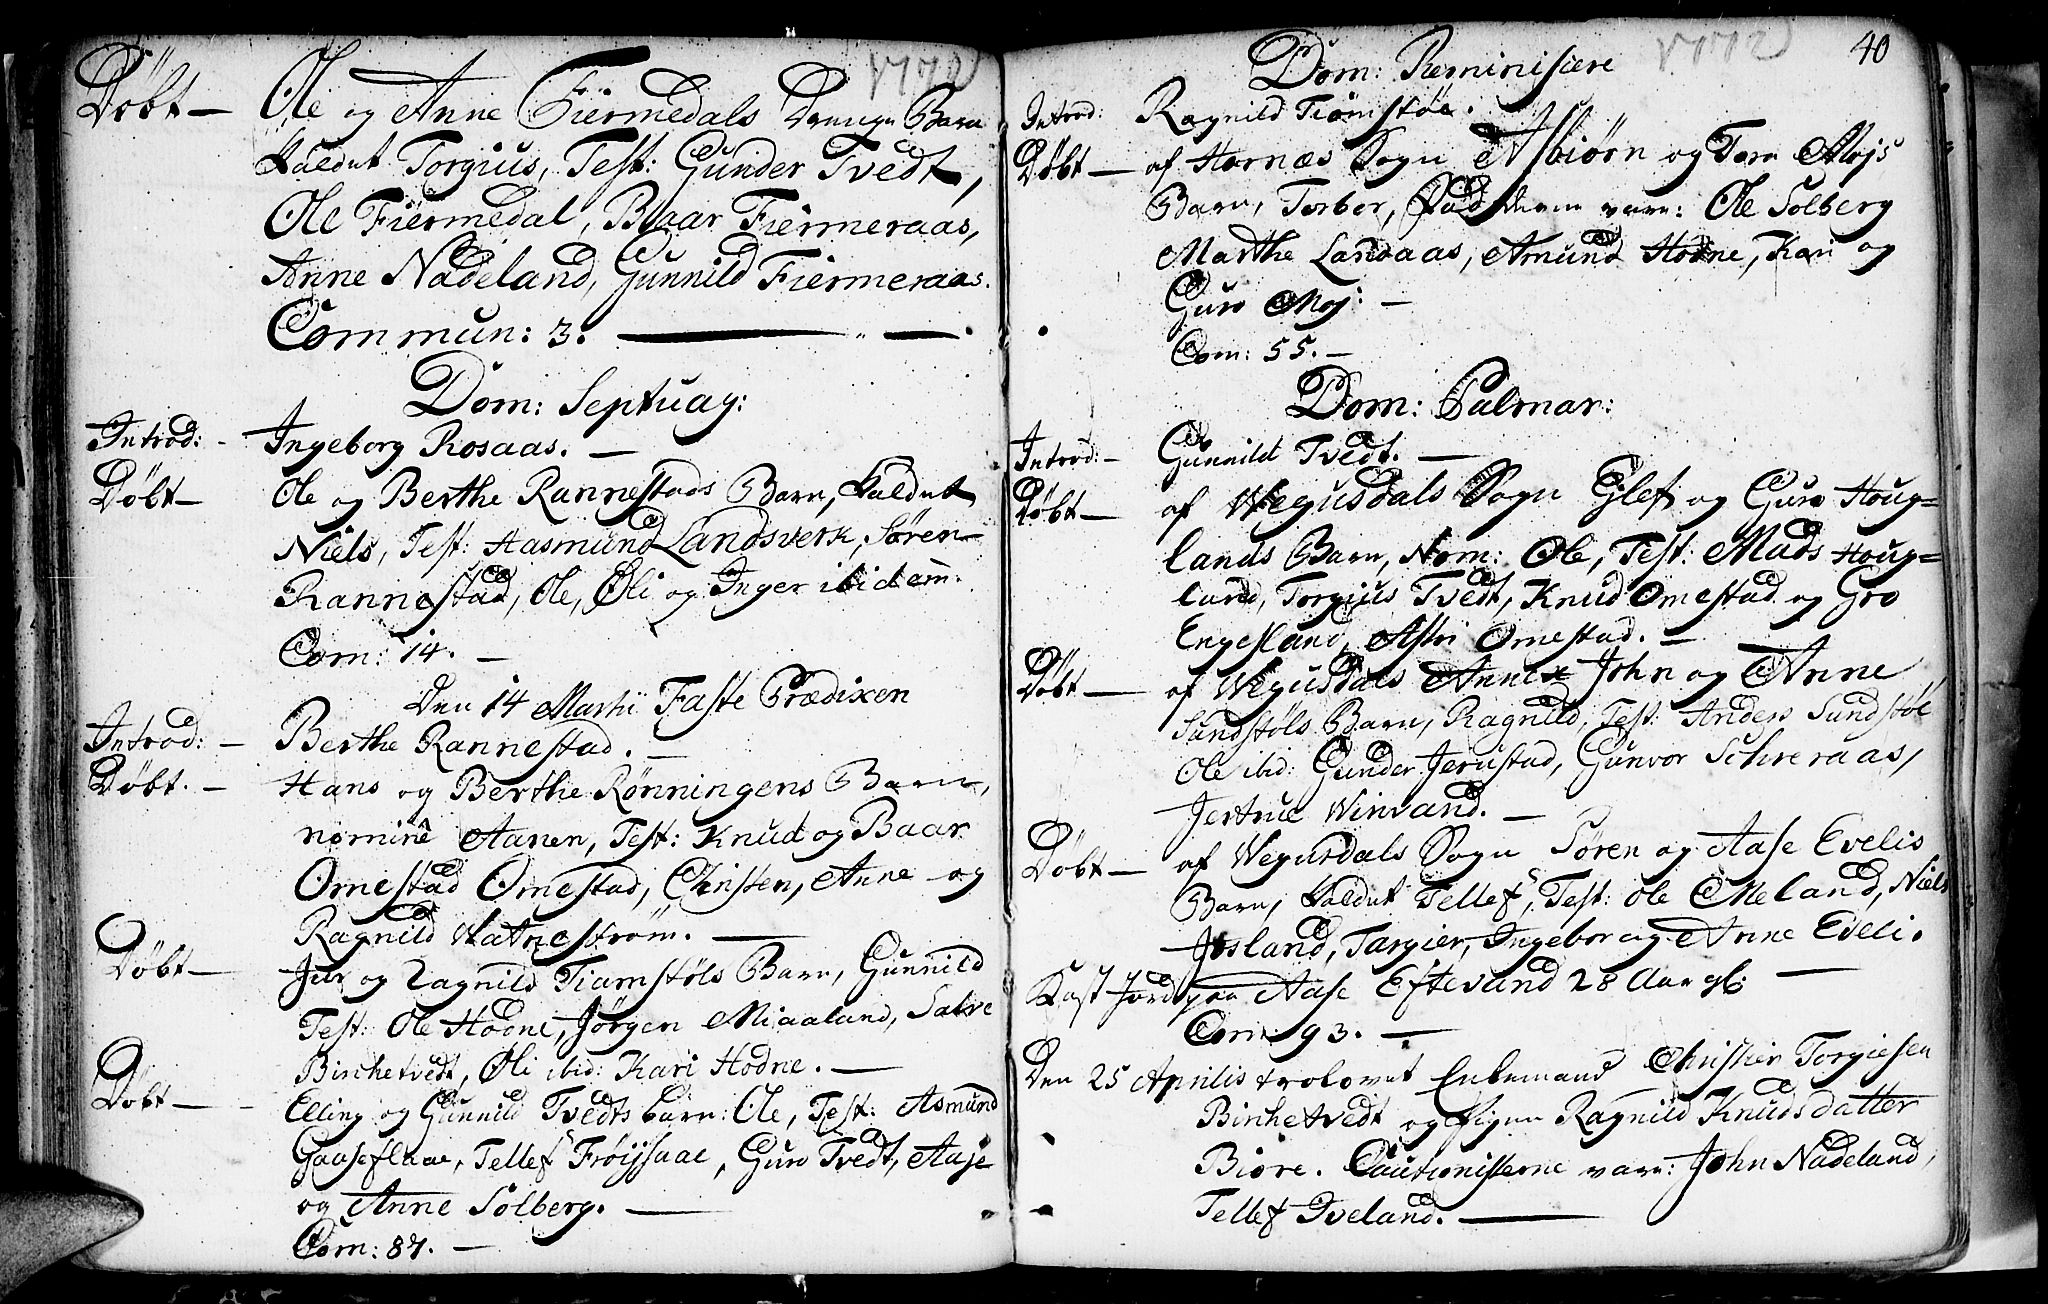 1772
Döbt — Ole og Anne Fiermedals Drenge Barn
kaldet Torgius, Test: Gunder Tvedt,
Ole Fiermedal, Baar Fiermeraas,
Anne Nadeland, Gunnild Fiermeraas.
Commun: 3. —
Dom: Septuag:
Introd: - Ingeborg Rosaas. —
Döbt — Ole og Berthe Rannestads Barn, kaldet
Niels, Test: Aasmund Landsverk, Søren
Rannestad, Ole, Oli og Inger ibidem.
Com: 14. —
Den 14 Martii Faste Prædiken
Introd: — Berthe Rannestad. —
Döbt. — Hans og Berthe Rønningens Barn,
nomine Aanen, Test: Knud og Baar
Omestad Omestad, Christen, Anne og
Ragnild Vatnestrøm. —
Döbt — og Ragnild Tiamstøls Barn, Gunnild
Test: Ole Hodne, Jørgen Miaaland, Salve
Birchetvedt, Oli ibid: Kari Hodne. —
Döbt — Elling og Gunnild Tvedts barn: Ole, Test: Asmund
Gaaseflaae, Tellef Frøiysaae, Guro Tvedt, Aase
og Anne Solberg. —
Com: 87. —
1772 40
Dom: Reminiscere
Introd: Ragnild Tiomstøl.
Döbt — af Hornæs Sogn Asbiørn og Tore Mojs
Barn, Torbor, Fadderne vare: Ole Solberg
Marthe Landaas, Amund Hodne, Kari og
Guro Moj: —
Com: 55. —
Dom: Palmar:
Introd: — Gunnild Tvedt. —
Döbt — af Wegusdals Sogn Glef og Guro Houg=
lands Barn, Nom: Ole, Test: Mads Houg=
land, Torgius Tvedt, Knud Omestad og Gro
Engesland, Astri Omestad. —
Döbt — af Wegusdals Annex John og Anne
Sundstøls Barn, Ragnild, Test: Anders Sundstøl
Ole ibid: Gunder Jerustad, Gunvor Schreraas,
Jertrue Winvand. —
Döbt — af Wegusdals Sogn Søren og Aase Evelis
Barn, kaldet Tellef, Test: Ole Meland, Niels
Josland, Targier, Ingebor og Anne Eveli.
Kast Jord paa Aase Eftevand 28 Aar gl: —
Com: 93. —
Den 25 Aprilis trolovet Enkemand Christen Torgiesen
Birchetvedt og Pigen Ragnild Knudsdatter
Biøre. Cautionisterne vare: John Nadeland,
Tellef Iveland. —